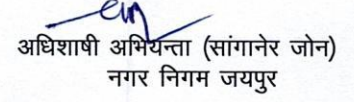 अधिशाषी अभियन्ता (सांगानेर जोन)
नगर निगम जयपुर